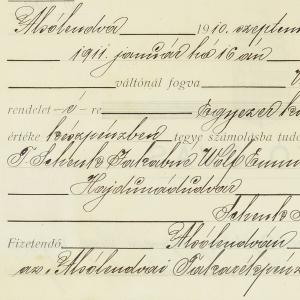 Alsólendva 1910. szeptem
1911. január hó 16 án
váltónál fogva
rendelet -é- re Egyezer k
értéke készpénzben tegye számolásba tud
T. Schenk Jakabné Wolf Emm
Hajdunádudvar
Schenk J
Fizetendő Alsólendván
az „Alsólendvai Takarékpénz